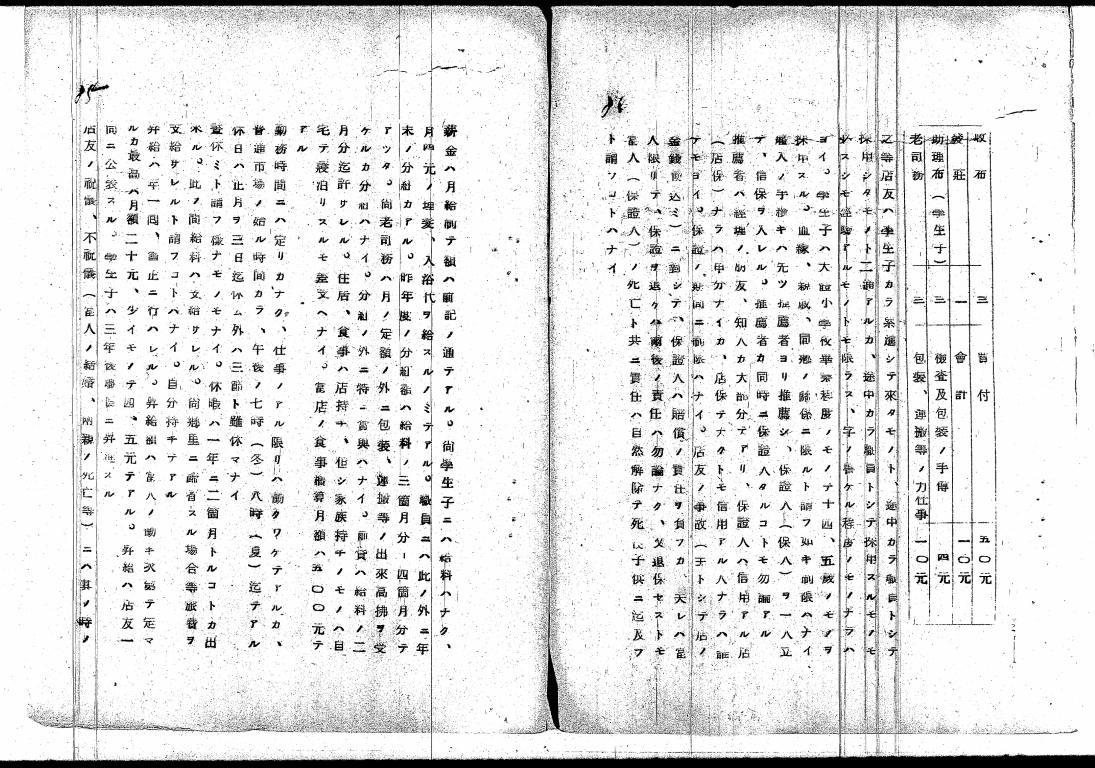 86
收布 三 買付 五〇元
袋莊 一 會計 一〇元
助理布(學生子) 二 檢査及包裝ノ手傳 四元
老司務 三 包裝、運搬等ノ力仕事 一〇元
之等店友ハ學生子カラ累進シテ來タモノト、途中カラ職員トシテ
採用シタモノト二通アルカ、途中カラ職員トシテ採用スルモノモ
必スシモ經驗アルモノトモ限ラス、字ノ書ケル程度ノモノナラハ
ヨイ。學生子ハ大體小學校畢業程度ノモノテ十四、五歲ノモノヲ
採用スル。血緣、親戚、同鄉ノ關係ニ限ルト謂フ如キ制限ハナイ、
雇入ノ手續キハ先ツ推薦者ヨリ推薦シ、保證人(保人)ヲ一人立
テ、信保ヲ入レル。推薦者カ同時ニ保證人タルコトモ勿論アル
推薦者ハ經理ノ朋友、知人カ大部分テアリ、保證人ハ信用アル店
(店保)ナラハ申分ナイカ、店保テナクトモ信用アル人ナラハ誰
テモヨイ。保證ノ期間ニ制限ハナイ。店友ノ事故(主トシテ店ノ
金錢使込ミ)ニ對シテ、保證人ハ賠償ノ責任ヲ負フカ、夫レハ當
人限リテ、保證ヲ退ケタ爾後ノ責任ハ勿論ナク、又退保セストモ
當人(保證人)ノ死亡ト共ニ責任ハ自然解除テ死後子供ニ迄及フ
ト謂フコトハナイ
85
薪金ハ月給制テ額ハ前記ノ通テアル。尙學生子ニハ給料ハナク、
月四元ノ理髮、入浴代ヲ給スルノミテアル。職員ニハ此ノ外ニ年
末ノ分紅カアル。昨年度ノ分紅額ハ給料ノ三箇月分ー四箇月分テ
アツタ。尙老司務ハ月ノ定額ノ外ニ包裝、運搬等ノ出來高拂ヲ受
ケルカ分紅ハナイ。分紅ノ外ニ特ニ賞與ハナイ。前貸ハ給料ノ二
月分迄許サレル。住居、食事ハ店持チ、但シ家族持チノモノハ自
宅テ寢泊リスルモ差支ヘナイ。當店ノ食事概算月額ハ五〇〇元テ
アル
勤務時間ニハ定リカナク、仕事ノアル限リハ働クワケテアルカ、
普通市場ノ始ル時間カラ、午後ノ七時(冬)八時(夏)迄テアル
休日ハ正月ヲ三日迄休ム外ハ三節ト雖休マナイ
晝休ミト謂フ樣ナモノモナイ。休暇ハ一年ニ二箇月トルコトカ出
來ル。此ノ間給料ハ支給サレル。尙鄉里ニ歸省スル場合等旅費ヲ
支給サレルト謂フコトハナイ。自分持チテアル
昇給ハ年一囘、舊正ニ行ハレル。昇給額ハ當人ノ働キ次第テ定マ
ルカ最高ハ月額二十元、少イモノテ四、五元テアル。昇給ハ店友一
同ニ公表スル。學生子ハ三年後職員ニ昇進スル
店友ノ祝儀、不祝儀(當人ノ結婚、兩親ノ死亡等)ニハ其ノ時ノ